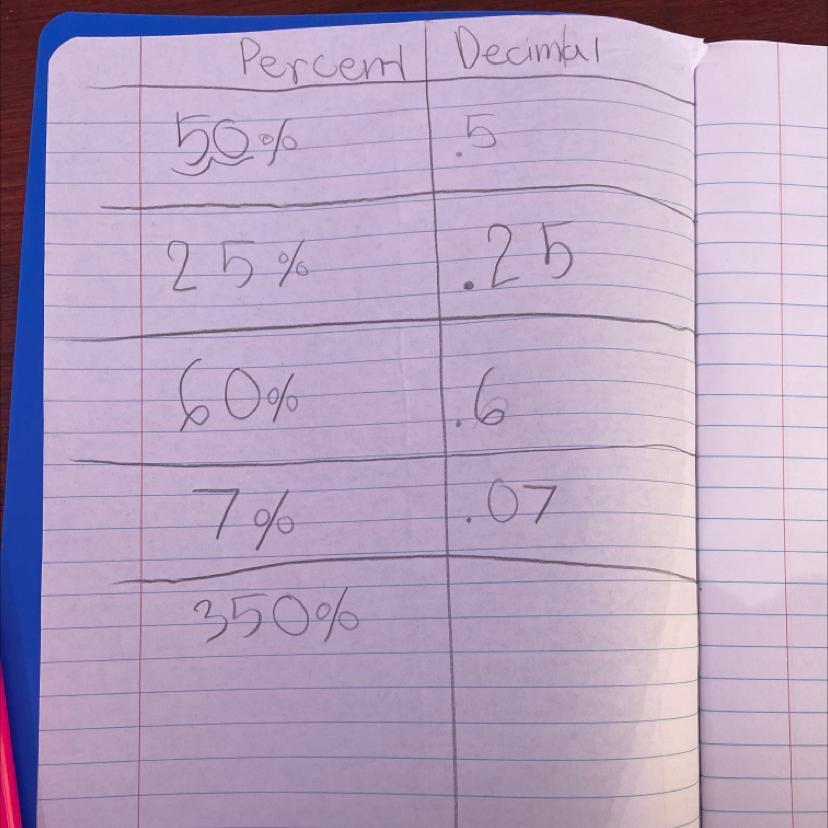 Percent Decimal
50% .5
25% .25
60% .6
7% .07
350%